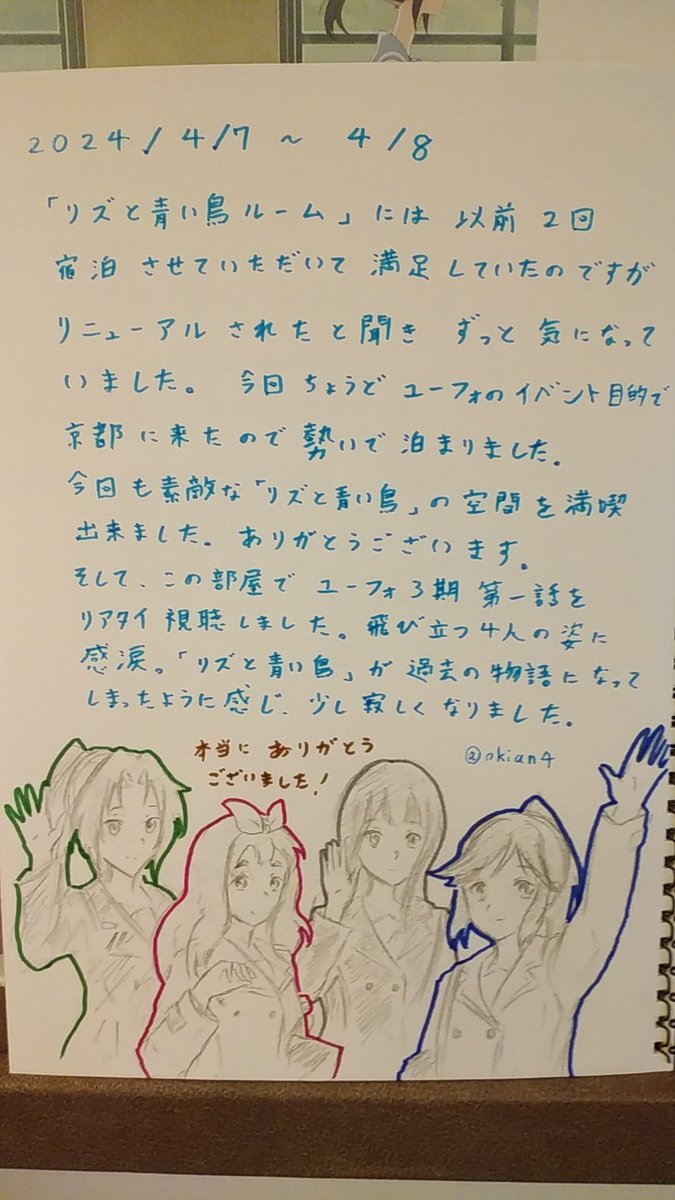 2024/4/7 ~ 4/8
「リズと青い鳥ルーム」には 以前 2回
宿泊 させていただいて 満足 していたのですが
リニューアル されたと聞き ずっと 気になって
いました。 今回 ちょうど ユーフォのイベント目的で
京都に来たので 勢いで 泊まりました。
今回も素敵な「リズと青い鳥」の空間を満喫
出来ました。ありがとうございます。
そして、この部屋で ユーフォ3期 第一話を
リアタイ 視聴しました。飛び立つ4人の姿に
感涙。「リズと青い鳥」が 過去の物語になって
しまったように感じ、少し寂しくなりました。
本当に ありがとう
ございました!
@okian4